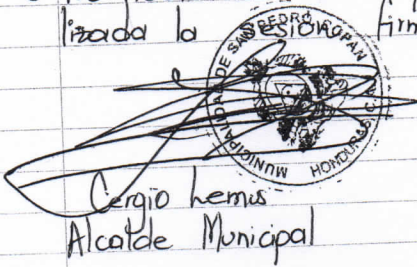 lizada la sesion
MUNICIPALIDAD DE SAN PEDRO COPAN
HONDURAS, C.A.
Cergio Lemus
Alcalde Municipal